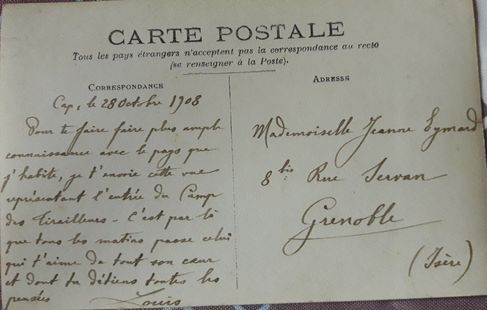 CARTE POSTALE
Tous les pays étrangers n'acceptent pas la correspondance au recto
(se renseigner à la Poste).
CORRESPONDANCE
Cap, le 28 Octobre 1908
Pour te faire faire plus ample
connaissance avec le pays que
j'habite, je t'envoie cette vue
représentant l'entrée du Camp
des Tirailleurs - C'est par là
que tous les matins passe celui
qui t'aime de tout son cœur
et dont tu détiens toutes les
pensées
Louis
ADRESSE
Mademoiselle Jeanne Eymard
8 bis Rue Servan
Grenoble
(Isère)